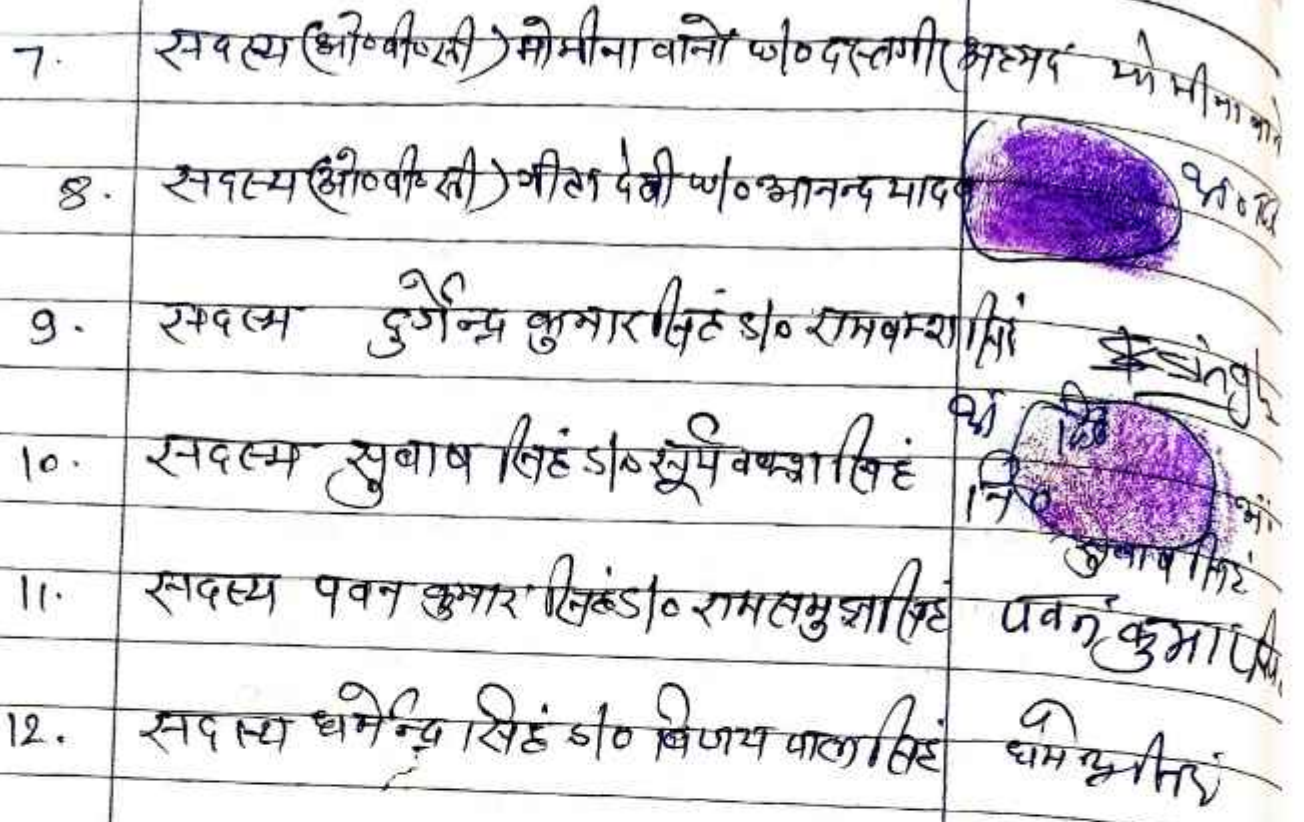 7. सदस्य (ओ०बी०सी) मोमीना वानों w/o दस्तगीर अहमद मोमीना वानो
8. सदस्य (ओ०बी०सी) गीता देवी w/o आनन्द यादव
9. सदस्य दुर्गेन्द्र कुमार सिहं s/o रामबक्श सिहं
10. सदस्य सुबाष सिहं s/o सूर्य वक्श सिहं
सुबाष सिहं
11. सदस्य पवन कुमार सिहं s/o रामसमुझ सिहं पवन कुमार सिंह
12. सदस्य धर्मेन्द्र सिहं s/o विजय पाल सिहं धर्मेन्द्र सिहं